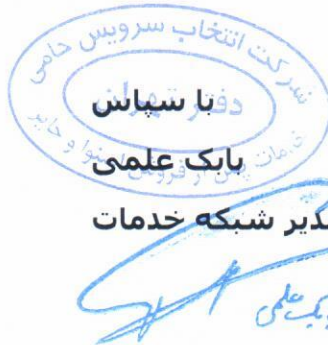 شرکت انتخاب سرویس حامی
دفتر تهران
خدمات پس از فروش اسنوا و حایر
با سپاس
بابک علمی
دیر شبکه خدمات
بابک علمی